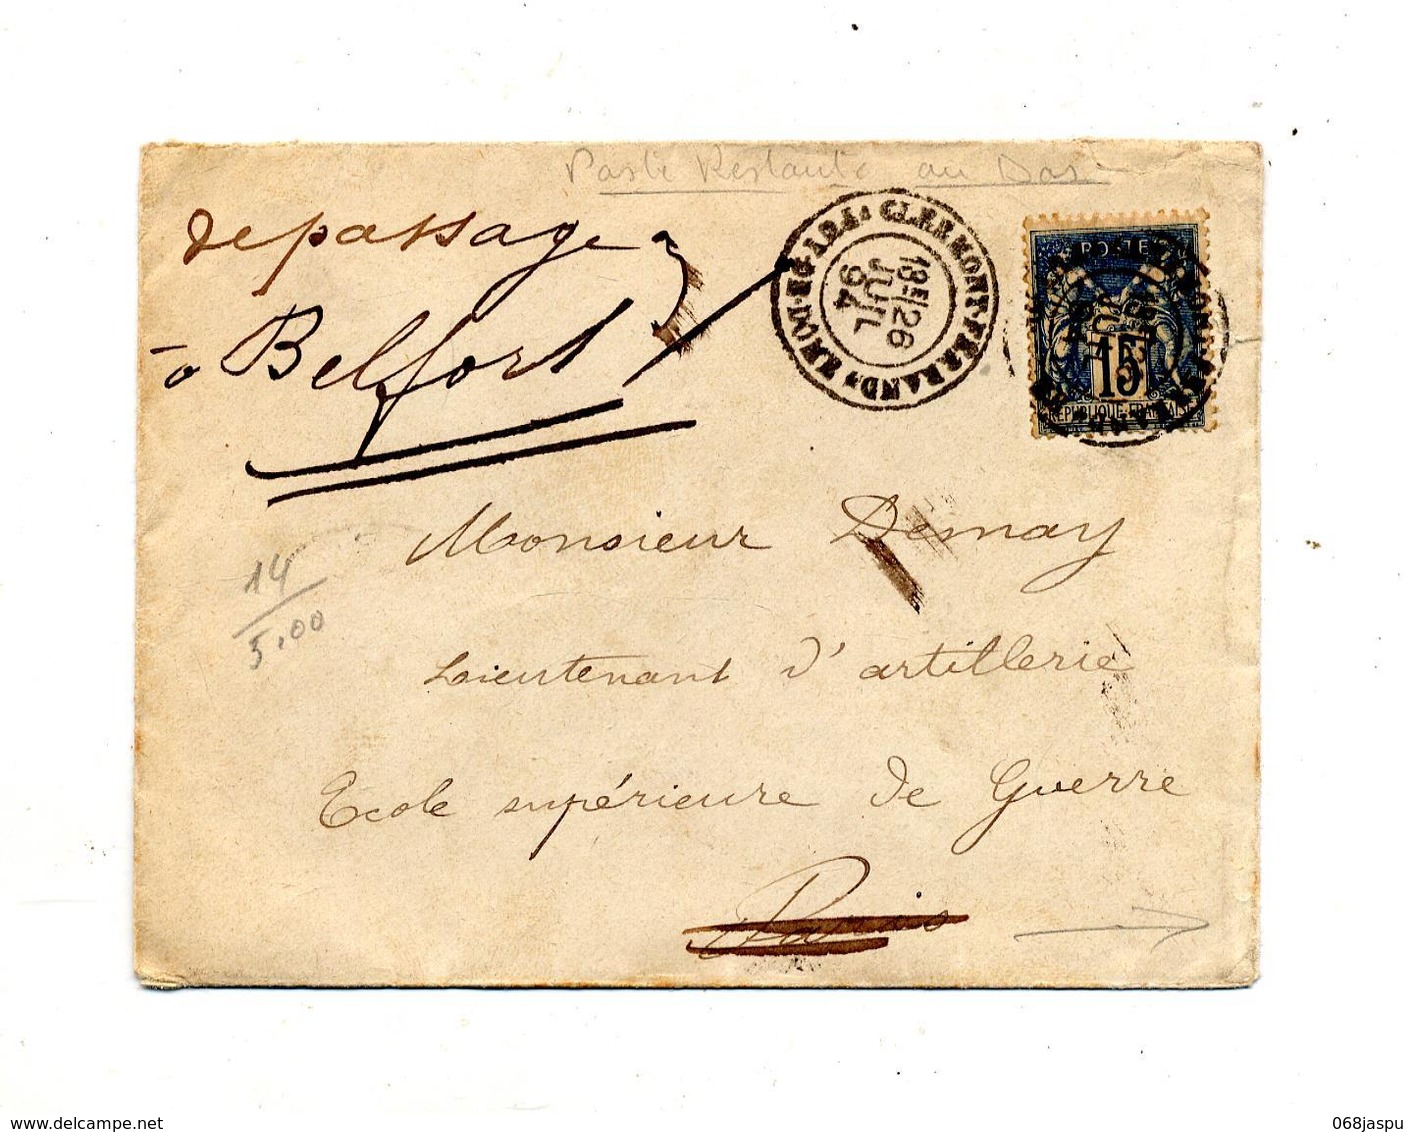 Poste Restante au Dos
de passage
à Belfort
CLERMONT-FERRAND PUY-DE-DÔME
18E/26
JUIL
94
POSTE
15
REPUBLIQUE FRANCAISE
Monsieur Demay
14
5,00
Lieutenant d'artillerie
Ecole supérieure de Guerre
Paris
www.delcampe.net
068jaspu